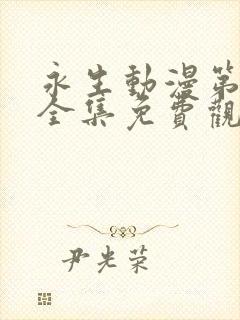 永生動漫第
全集免費觀
尹光榮